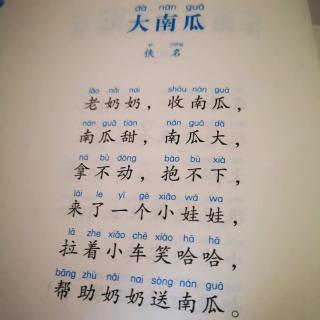 dà nán guā
大南瓜
yì míng
佚名
lǎo nǎi nai shōu nán guā
老奶奶，收南瓜，
nán guā tián nán guā dà
南瓜甜，南瓜大，
ná bù dòng bào bù xià
拿不动，抱不下，
lái le yī gè xiǎo wá wa
来了一个小娃娃，
lā zhe xiǎo chē xiào hā hā
拉着小车笑哈哈，
bāng zhù nǎi nai sòng nán guā
帮助奶奶送南瓜。